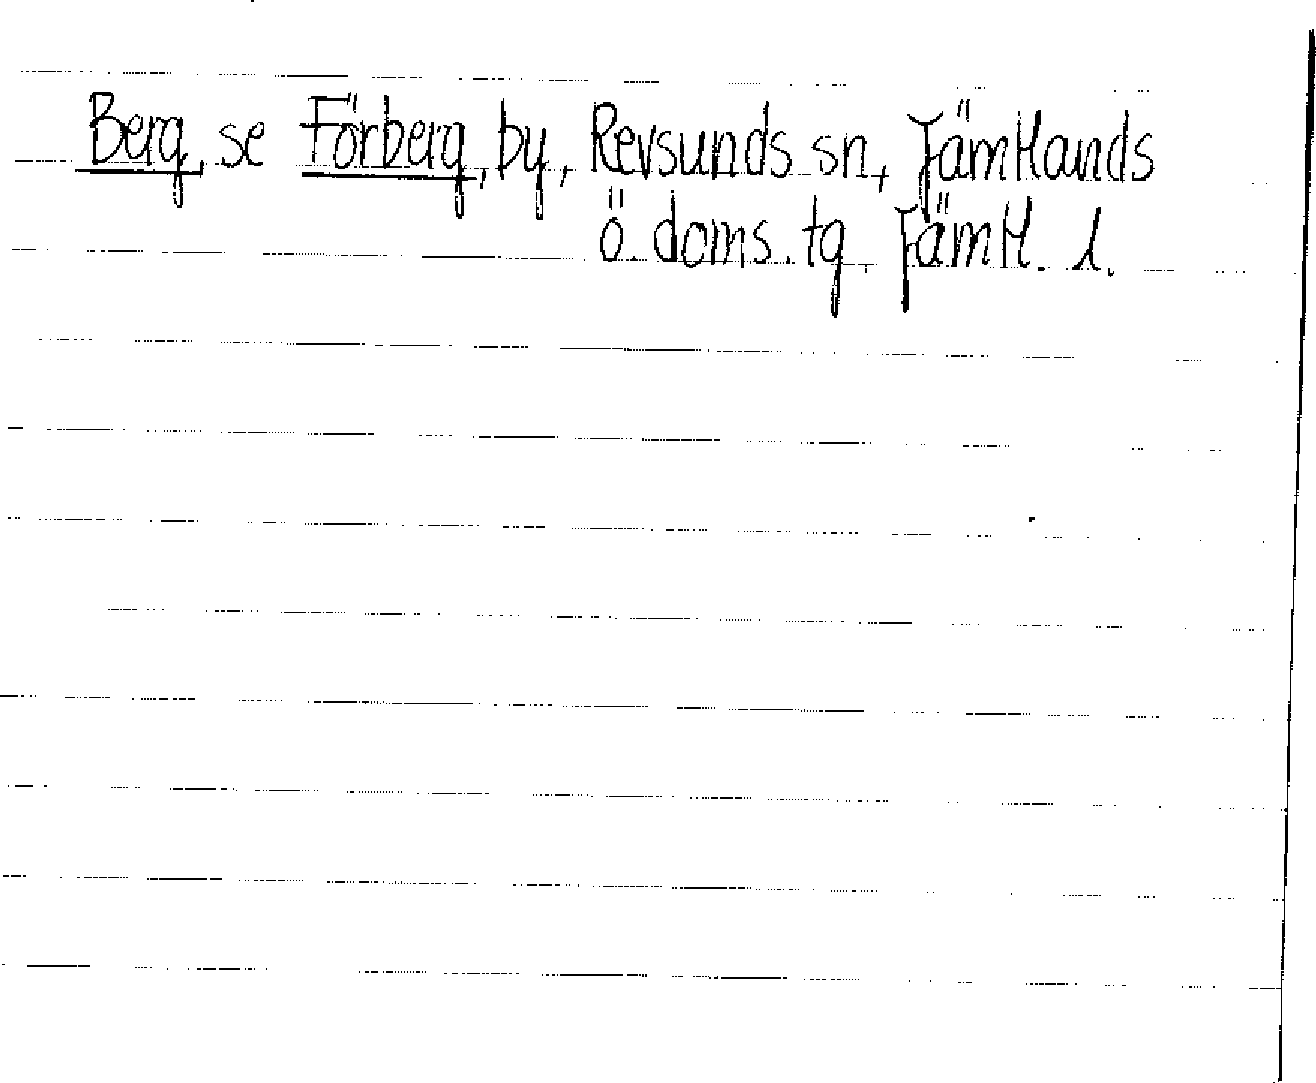 Berg, se Förberg, by, Revsunds sn, Jämtlands
ö. doms. tg, Jämtl. l.